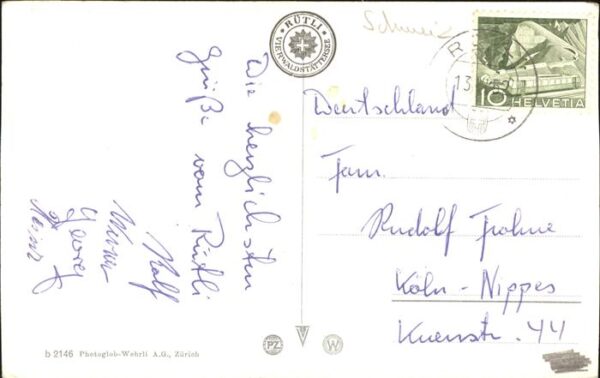 Die herzlichsten
Grüße vom Rütli
Rolf
Werner
Georg
Heinz
RÜTLI
VIERWALDSTÄTTERSEE
Schweiz
10 HELVETIA
13
Deutschland
Fam.
Rudolf Frohne
Köln-Nippes
Kuenstr. 44
b 2146 Photoglob-Wehrli A.G., Zürich
PZ
W